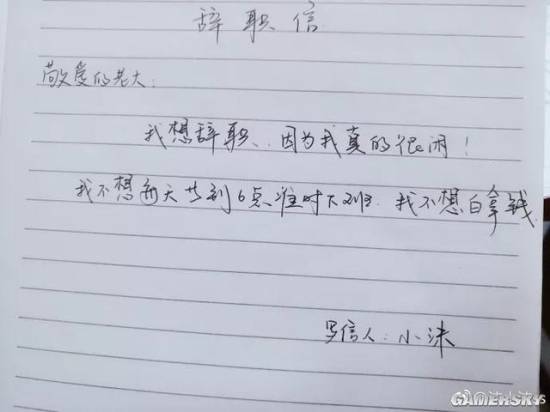 辞职信
敬爱的老大:
我想辞职、因为我真的很闲!
我不想每天节到6点准时下班.我不想白拿钱
写信人:小沫
GAMERSKY